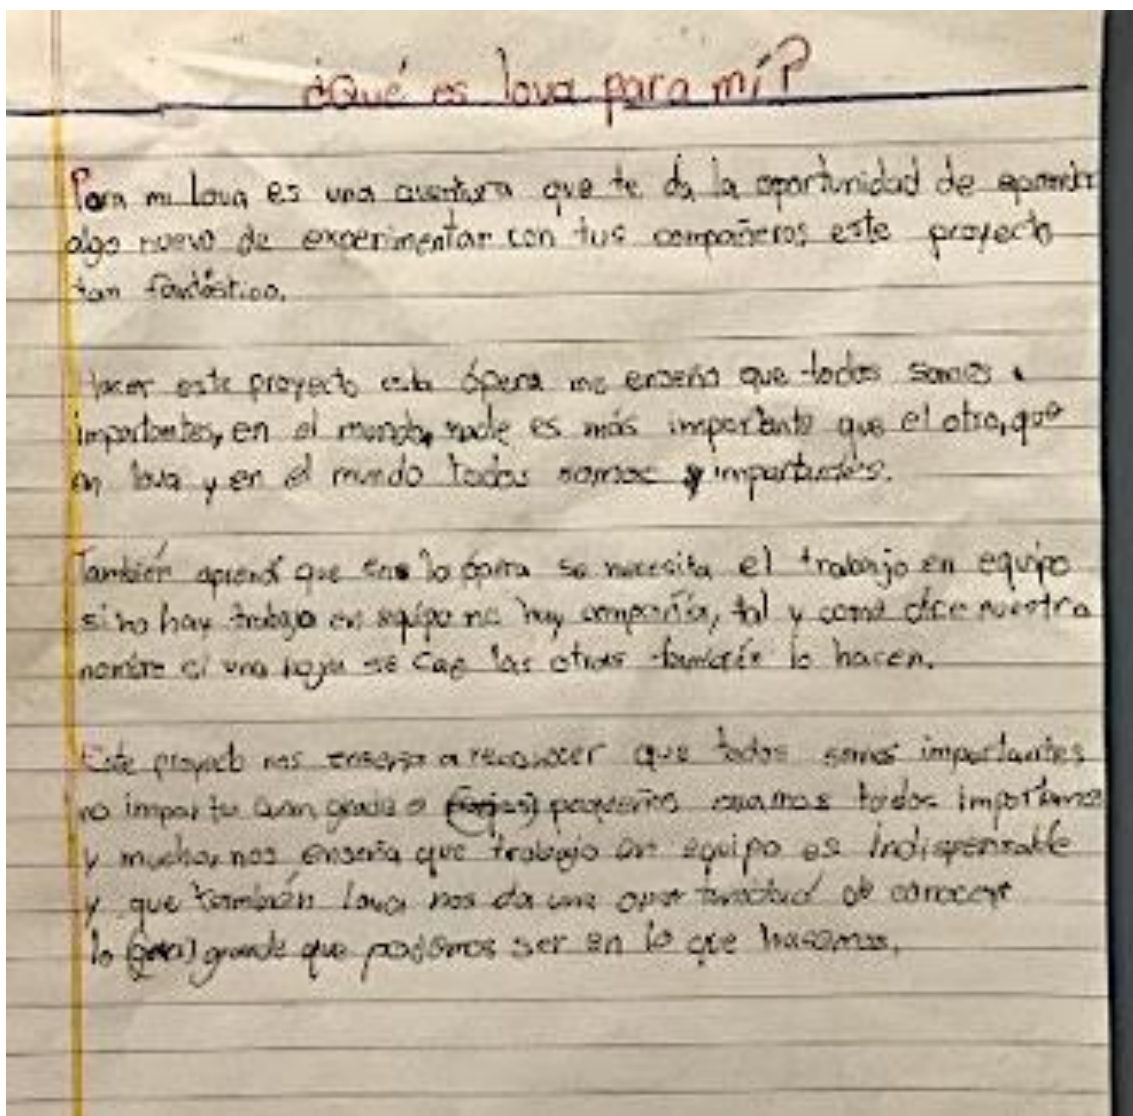 ¿Qué es lova para mí?
Para mi Lova es una aventura que te da la oportunidad de aprender
algo nuevo de experimentar con tus compañeros este proyecto
tan fantástico.
Hacer este proyecto esta ópera me enseño que todos somos
importantes, en el mundo, nadie es más importante que el otro, que
en lova y en el mundo todos somos importantes.
También aprendí que en la ópera se necesita el trabajo en equipo
si no hay trabajo en equipo no hay compañía, tal y como dice nuestro
nombre si una se cae las otras también lo hacen.
Este proyecto nos enseña a reconocer que todos somos importantes
no importa cuan grade o pequeños seamos todos importamos
y mucho, nos enseña que trabajo en equipo es indispensable
y que también lova nos da una oportunidad de conocer
lo grande que podemos ser en lo que hacemos.